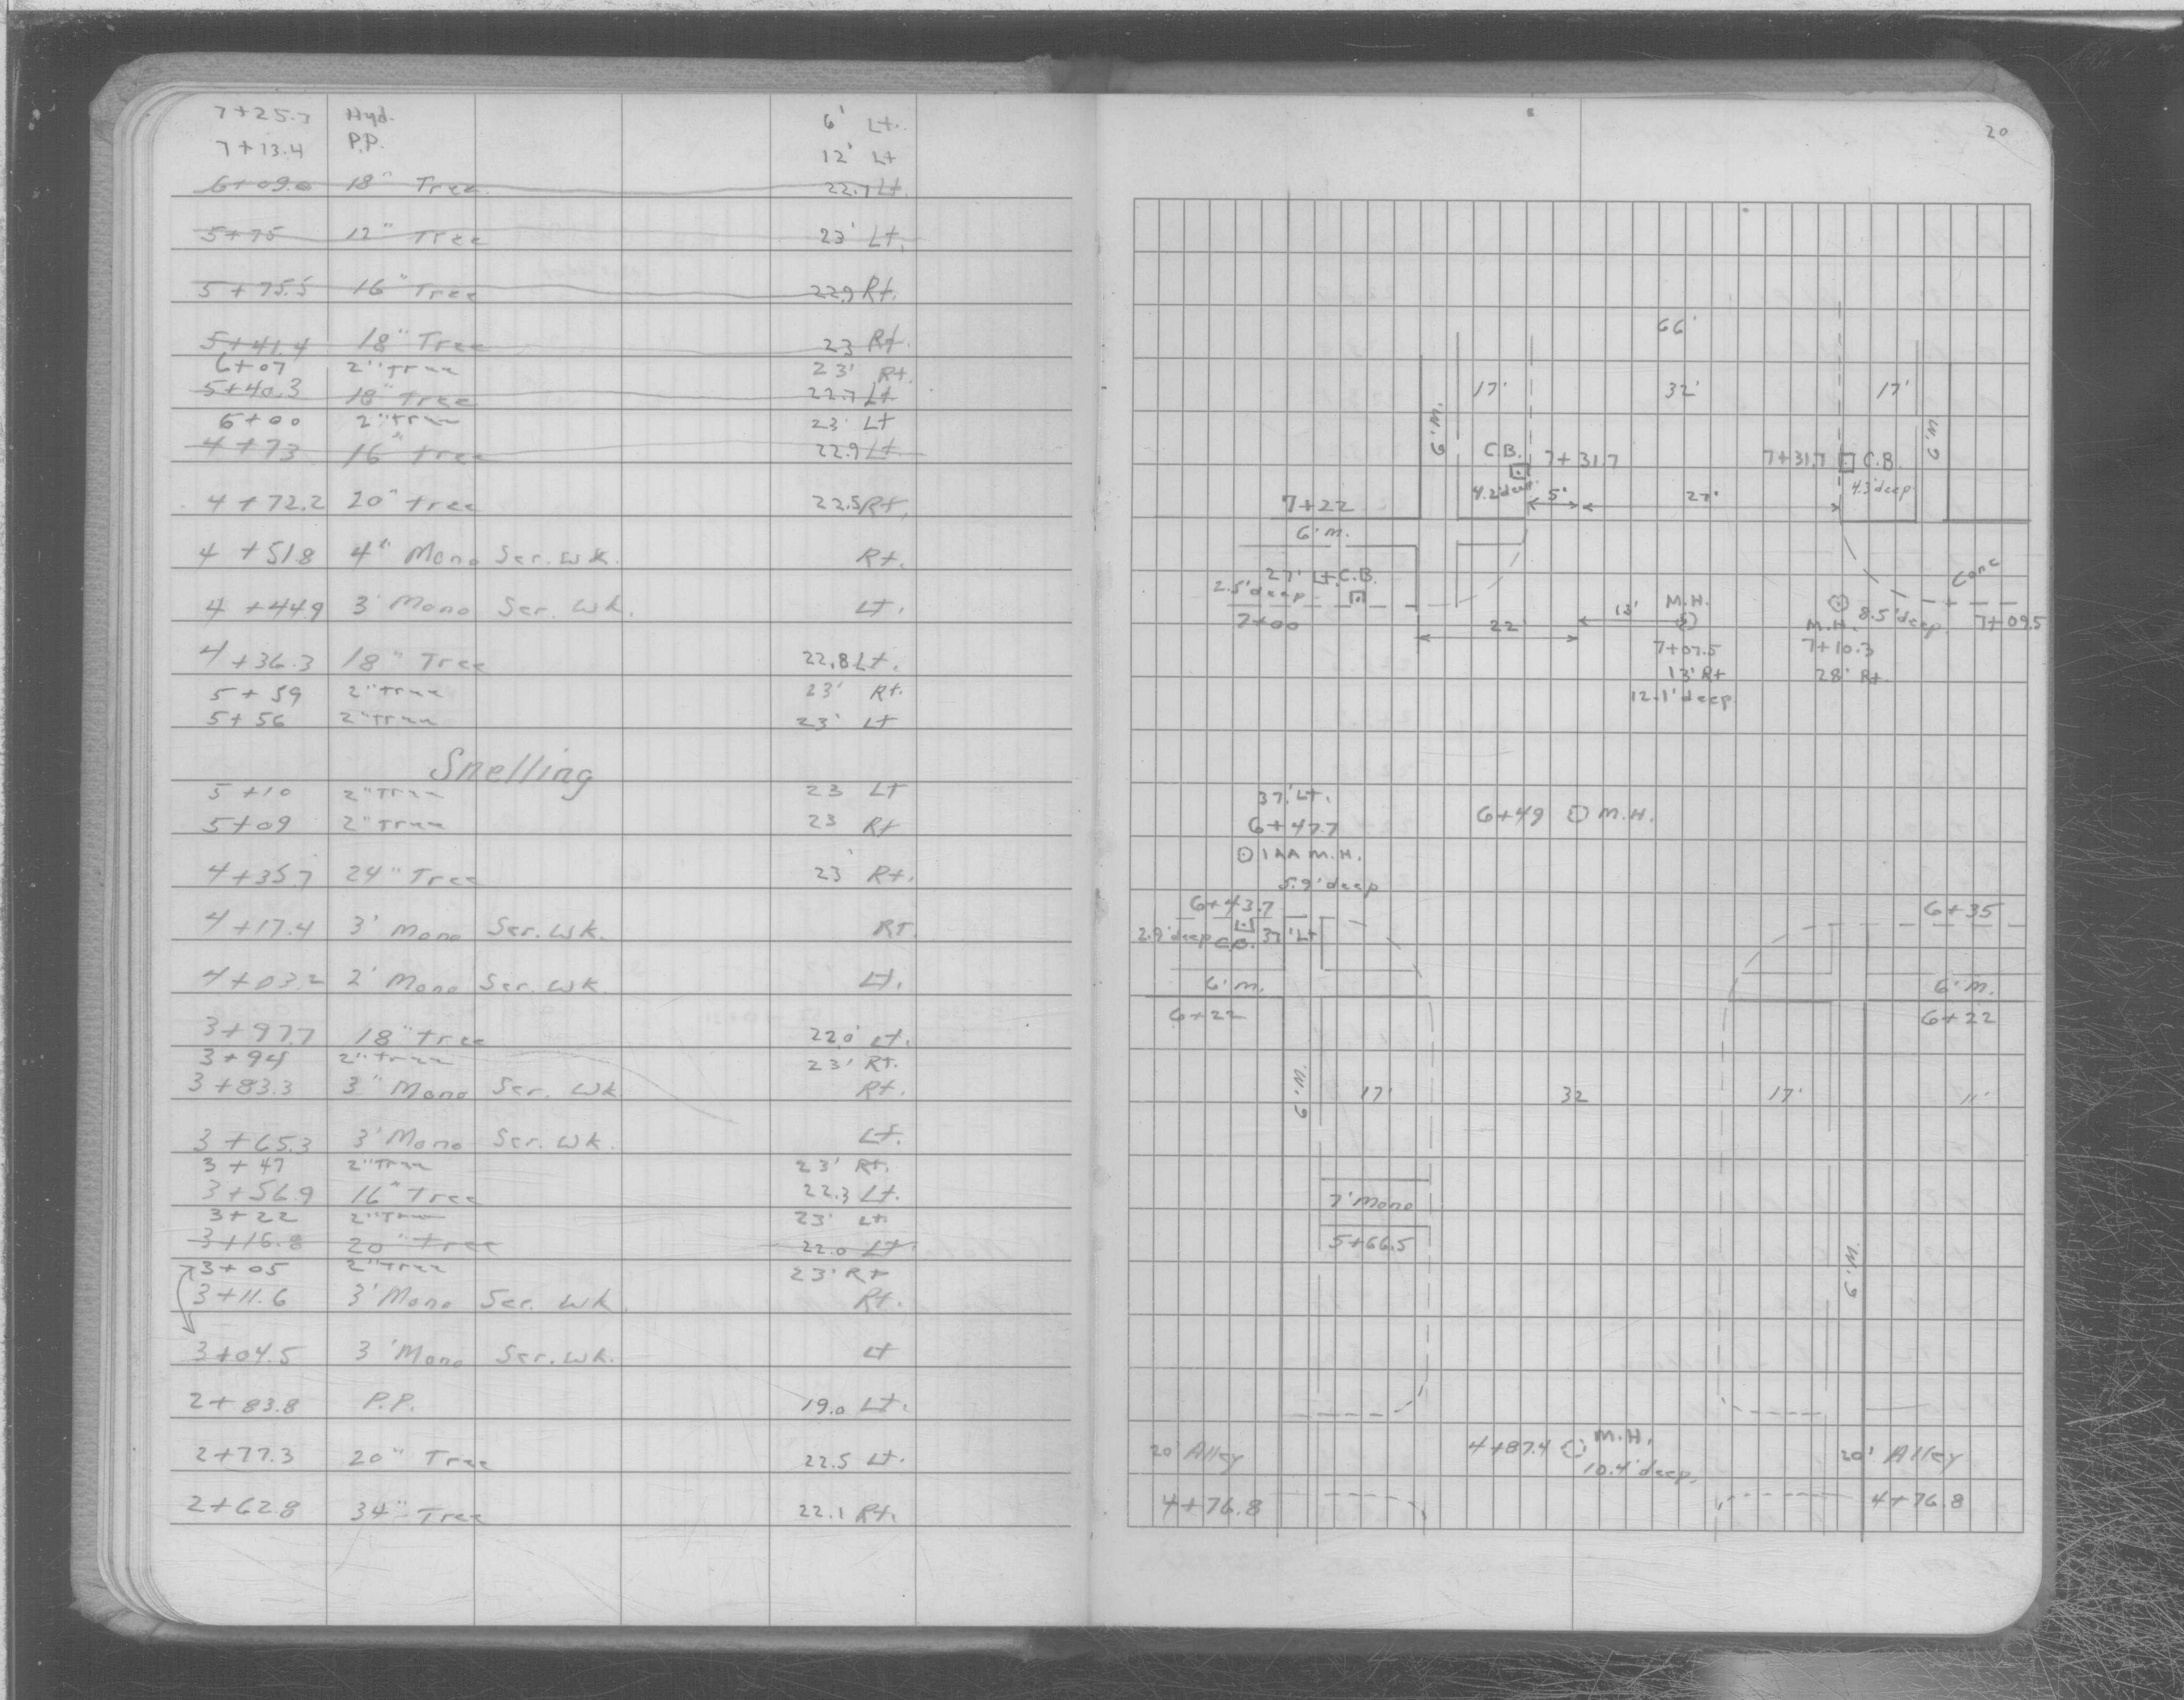 7+25.7 Hyd. 6' Lt.
7+13.4 P.P. 12' Lt
6+09.0 18" Tree 22.7 Lt.
5+75 12" Tree 23' Lt.
5+75.5 16" Tree 22.9 Rt.
5+41.4 18" Tree 23 Rt.
6+07 2" Tree 23' Rt.
5+40.3 18" Tree 22.7 Lt
6+00 2" tree 23' Lt
4+73 16" tree 22.9 Lt.
4+72.2 20" tree 22.5 Rt.
4+51.8 4" Mono Ser. Wk. Rt.
4+44.9 3' Mono Ser. Wk. Lt.
4+36.3 18" Tree 22.8 Lt.
5+59 2" tree 23' Rt.
5+56 2" tree 23' Lt
Snelling
5+10 2" Tree 23 Lt
5+09 2" Tree 23 Rt
4+35.7 24" Tree 23' Rt.
4+17.4 3' Mono Ser. Wk. Rt.
4+03.2 2' Mono Ser. Wk Lt.
3+97.7 18" tree 22.0' Lt.
3+94 2" tree 23' Rt.
3+83.3 3" Mono Ser. Wk. Rt.
3+65.3 3' Mono Ser. Wk. Lt.
3+47 2" Tree 23' Rt.
3+56.9 16" Tree 22.3 Lt.
3+22 2" Tree 23' Lt
3+16.8 20" tree 22.0 Lt.
3+05 2" Tree 23' Rt
3+11.6 3' Mono Ser. Wk. Rt.
3+04.5 3' Mono Ser. Wk. Lt
2+83.8 P.P. 19.0 Lt.
2+77.3 20" Tree 22.5 Lt.
2+62.8 34" Tree 22.1 Rt.
20
66'
17' 32' 17'
6' M. 6' M.
C.B. 7+31.7 7+31.7 C.B.
4.2' deep 5' 27' 4.3' deep
7+22
6' M.
Conc
27' Lt. C.B.
2.5' deep
7+00
22
13' M.H.
7+07.5
13' Rt
12.1' deep
M.H. 8.5' deep 7+09.5
7+10.3
28' Rt.
37' Lt.
6+47.7
M.H.
5.9' deep
6+49 M.H.
6+43.7
2.9' deep C.B. 37' Lt
6' M.
6+22
6+35
6' M.
6+22
6' M. 17' 32 17' 11'
7' Mono
5+66.5
6' M.
20' Alley 4+87.4 M.H. 20' Alley
10.4' deep.
4+76.8 4+76.8